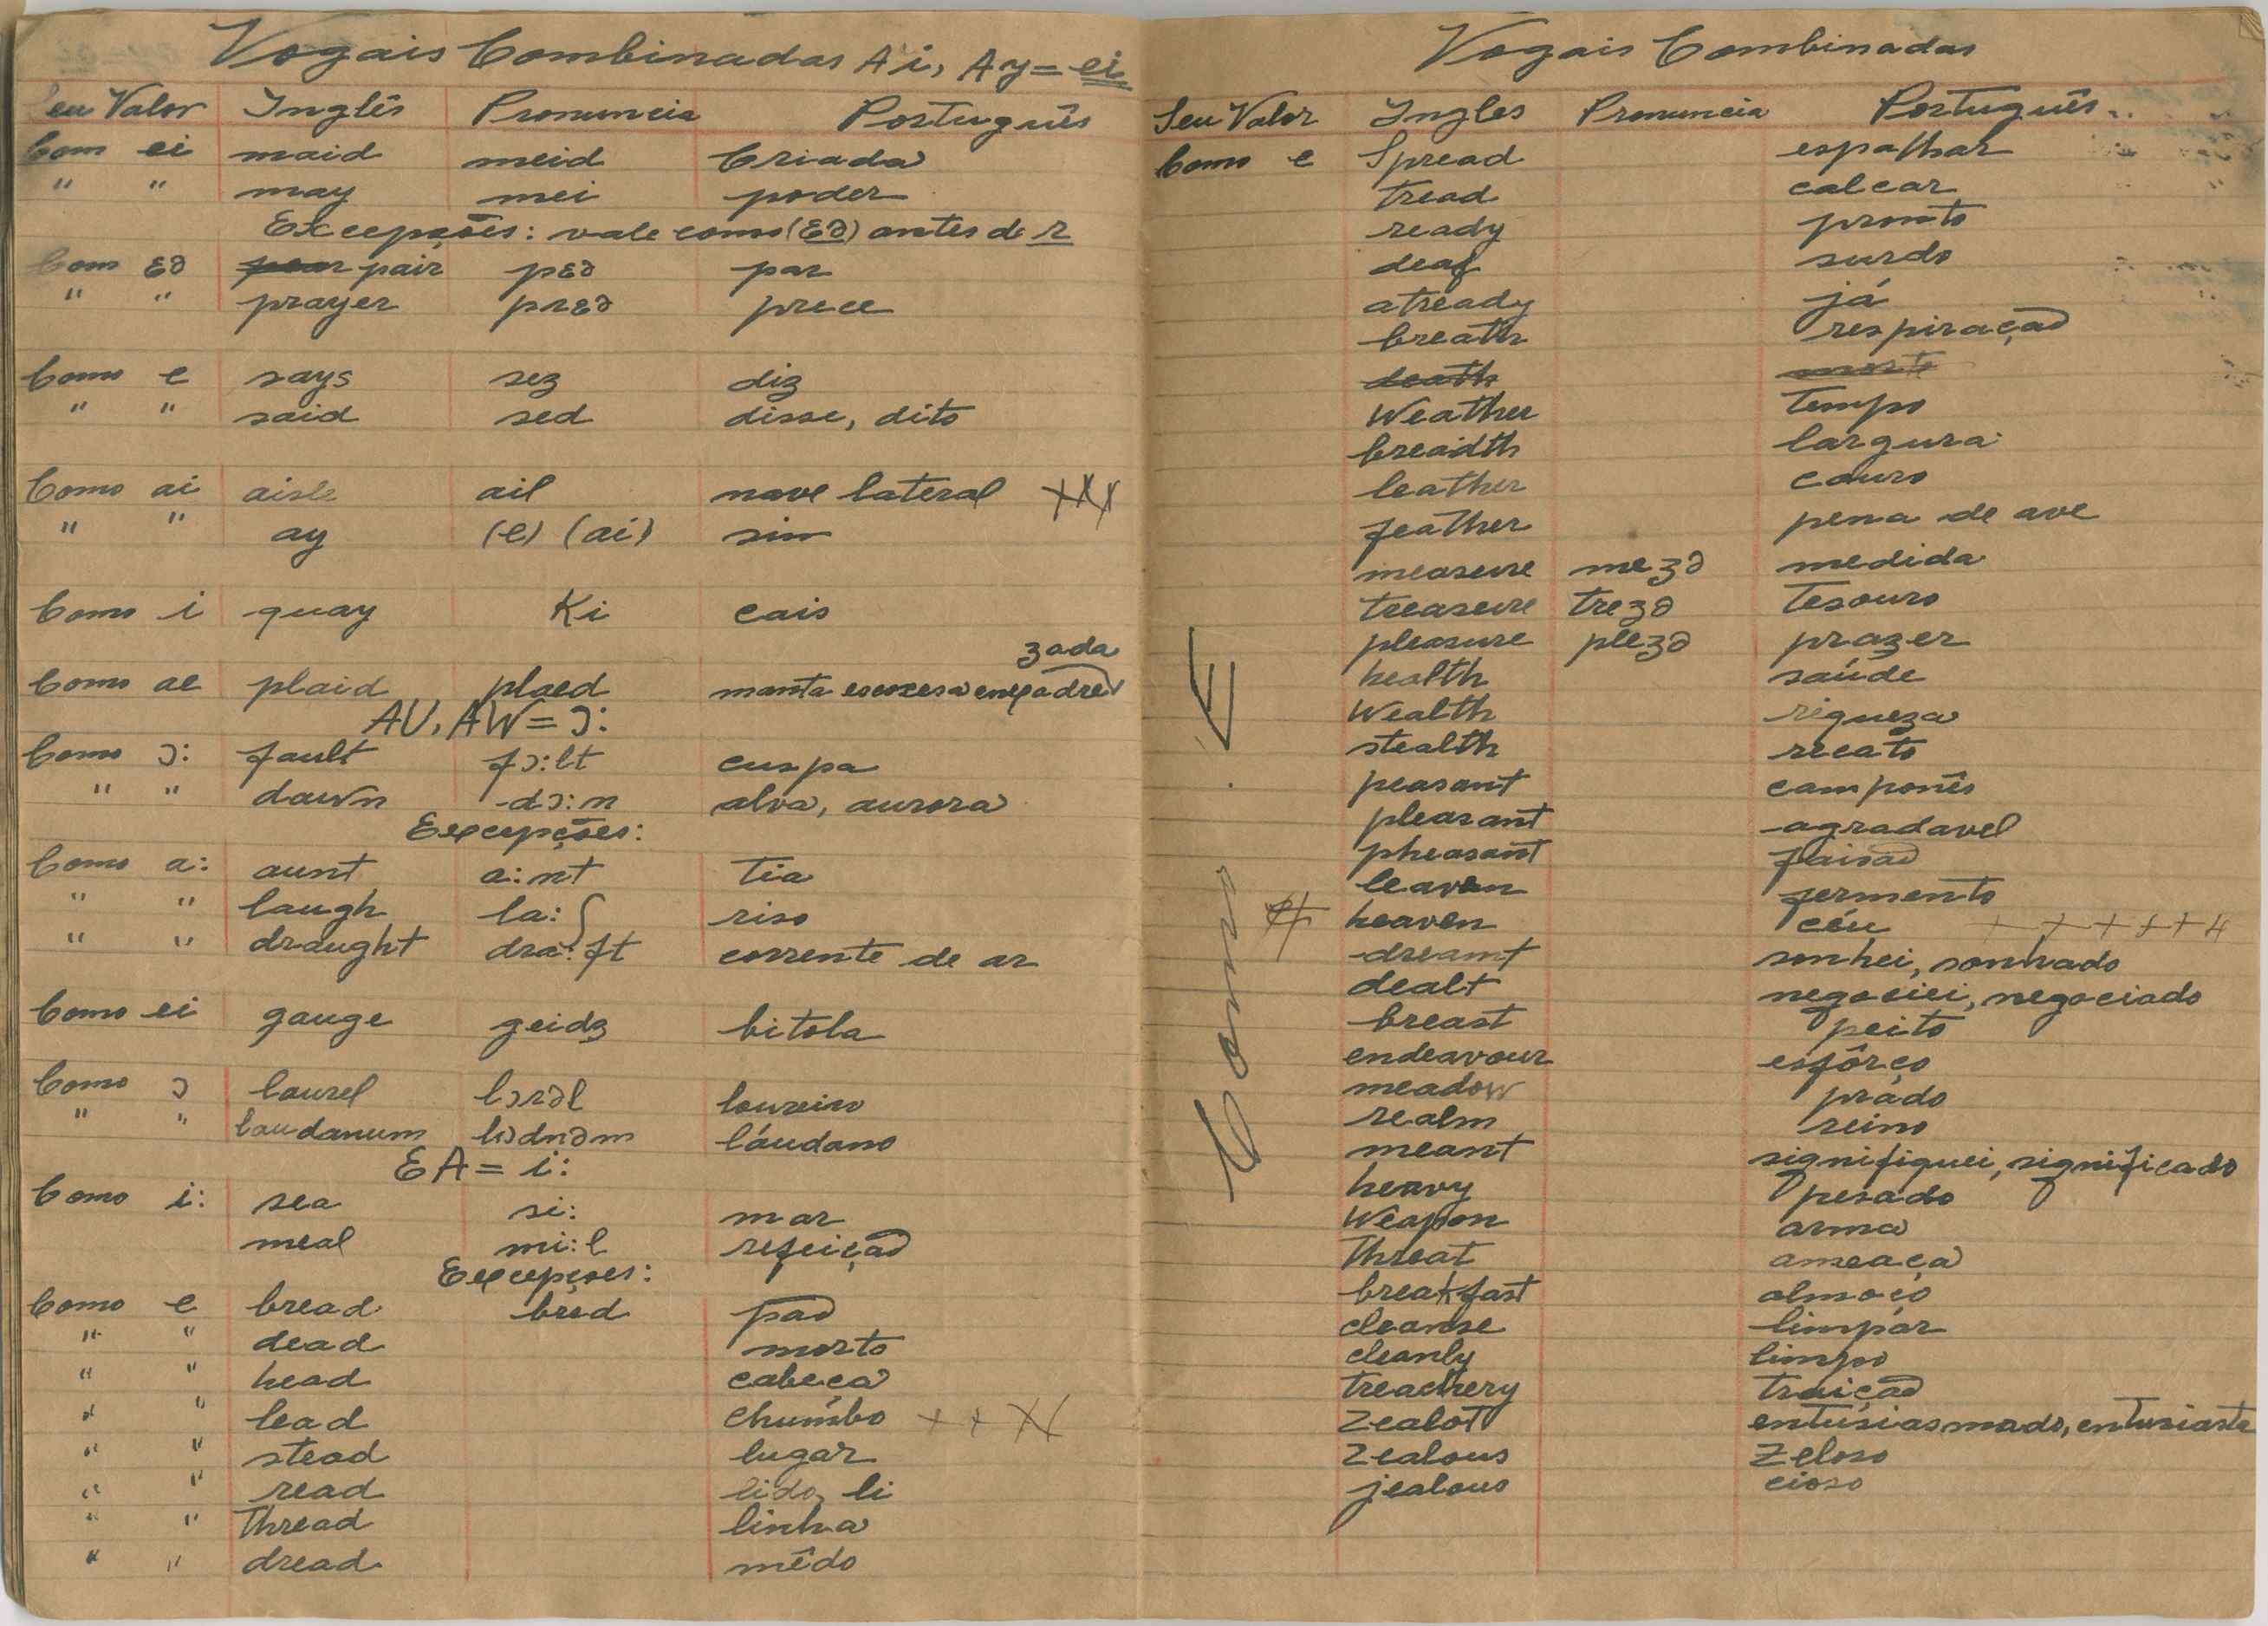 Vogais Combinadas Ai, Ay = ei
Seu Valor Inglês Pronuncia Português
Com ei maid meid Criada
" " may mei poder
Excepções: vale como (Ɛə) antes de r
Com Ɛə pair pƐə par
" " prayer prƐə prece
Como e says sez diz
" " said sed disse, dito
Como ai aisle ail nave lateral xxx
" " ay (e) (ai) sim
Como i quay Ki cais
zada
Como ae plaid plaed manta escocesa enxadre
AU, AW = ɔ:
Como ɔ: fault fɔ:lt cuspa
" " dawn dɔ:n alva, aurora
Excepções:
Como a: aunt a:nt tia
" " laugh la:f riso
" " draught dra:ft corrente de ar
Como ei gauge geidʒ bitola
Como ɔ laurel lɔrəl loureiro
" " laudanum lɔdnəm láudano
EA = i:
Como i: sea si: mar
meal mi:l refeição
Excepções:
Como e bread bred pão
" " dead morto
" " head cabeça
" " lead chumbo + + x
" " stead lugar
" " read lido, li
" " Thread linha
" " dread mêdo
Vogais Combinadas
Seu Valor Ingles Pronuncia Português..
Como e Spread espalhar
tread calcar
ready pronto
deaf surdo
already já
breath respiração
death morte
Weather tempo
breadth largura
leather couro
feather pena de ave
measure meʒə medida
treasure treʒə tesouro
pleasure pleʒə prazer
health saúde
Wealth riqueza
stealth recato
peasant camponês
pleasant agradavel
pheasant faisão
leaven fermento
heaven céu + + + + + +
dreamt sonhei, sonhado
dealt negociei, negociado
breast peito
endeavour esfôrço
meadow prado
realm reino
meant signifiquei, significado
heavy pesado
Weapon arma
Threat ameaça
breakfast almoço
cleanse limpar
cleanly limpo
treachery traição
Zealot entusiasmado, entusiasta
Zealous Zeloso
jealous cioso
Como E